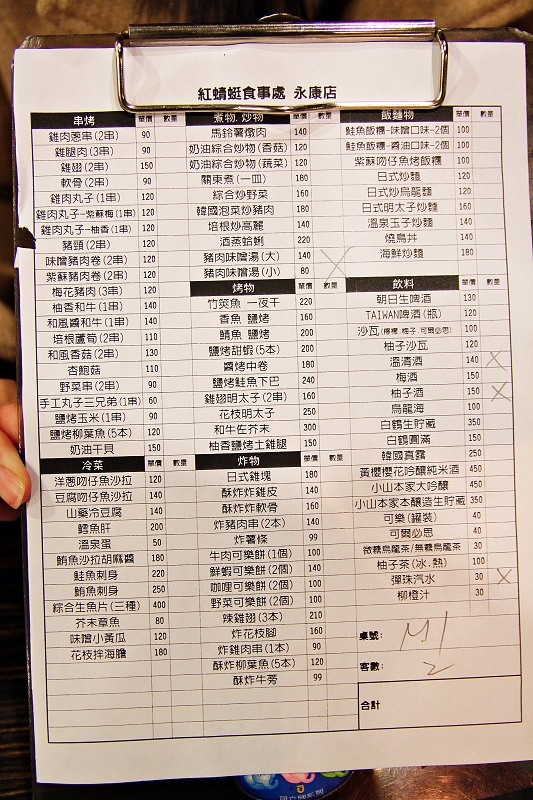 紅蜻蜓食事處 永康店
串烤 單價 數量
雞肉蔥串(2串) 90
雞腿肉(3串) 90
雞翅(2串) 150
軟骨(2串) 90
雞肉丸子(1串) 120
雞肉丸子-紫蘇梅(1串) 120
雞肉丸子-柚香(1串) 120
豬頸(2串) 120
味噌豬肉卷(2串) 120
紫蘇豬肉卷(2串) 120
梅花豬肉(3串) 120
柚香和牛(1串) 140
和風醬和牛(1串) 140
培根蘆筍(2串) 110
和風香菇(2串) 130
杏鮑菇 110
野菜串(2串) 90
手工丸子三兄弟(1串) 60
鹽烤玉米(1串) 90
鹽烤柳葉魚(5本) 120
奶油干貝 150
冷菜 單價 數量
洋蔥吻仔魚沙拉 120
豆腐吻仔魚沙拉 140
山藥冷豆腐 140
鱈魚肝 200
溫泉蛋 50
鮪魚沙拉胡麻醬 180
鮭魚刺身 220
鮪魚刺身 250
綜合生魚片(三種) 400
芥末章魚 80
味噌小黃瓜 120
花枝拌海膽 180
煮物.炒物 單價 數量
馬鈴薯燉肉 140
奶油綜合炒物(香菇) 120
奶油綜合炒物(蔬菜) 120
關東煮(一皿) 180
綜合炒野菜 160
韓國泡菜炒豬肉 180
培根炒高麗 140
酒蒸蛤蜊 220
豬肉味噌湯(大) 140
豬肉味噌湯(小) 80
烤物 單價 數量
竹筴魚 一夜干 220
香魚 鹽烤 160
鯖魚 鹽烤 200
鹽烤甜蝦(5本) 200
醬烤中卷 180
鹽烤鮭魚下巴 240
雞翅明太子(2串) 160
花枝明太子 250
和牛佐芥末 300
柚香鹽烤土雞腿 150
炸物 單價 數量
日式雞塊 180
酥炸炸雞皮 140
酥炸炸軟骨 160
炸豬肉串(2本) 140
炸薯條 99
牛肉可樂餅(1個) 100
鮮蝦可樂餅(2個) 140
咖哩可樂餅(2個) 100
野菜可樂餅(2個) 100
辣雞翅(3本) 210
炸花枝腳 160
炸雞肉串(1本) 90
酥炸柳葉魚(5本) 120
酥炸牛蒡 99
飯麵物 單價 數量
鮭魚飯糰-味噌口味-2個 100
鮭魚飯糰-醬油口味-2個 100
紫蘇吻仔魚烤飯糰 100
日式炒麵 120
日式炒烏龍麵 120
日式明太子炒麵 160
溫泉玉子炒麵 140
燒鳥丼 140
海鮮炒麵 180
飲料 單價 數量
朝日生啤酒 130
TAIWAN啤酒(瓶) 120
沙瓦(檸檬.梅子.可爾必思) 100
柚子沙瓦 120
溫清酒 140
梅酒 150
柚子酒 150
烏龍海 100
白鶴生貯藏 350
白鶴圓滿 150
韓國真露 250
黃櫻櫻花吟釀純米酒 450
小山本家大吟釀 450
小山本家本釀造生貯藏 350
可樂(罐裝) 40
可爾必思 40
微糖烏龍茶/無糖烏龍茶 30
柚子茶(冰.熱) 100
彈珠汽水 30
柳橙汁 30
桌號: M1
客數: 2
合計